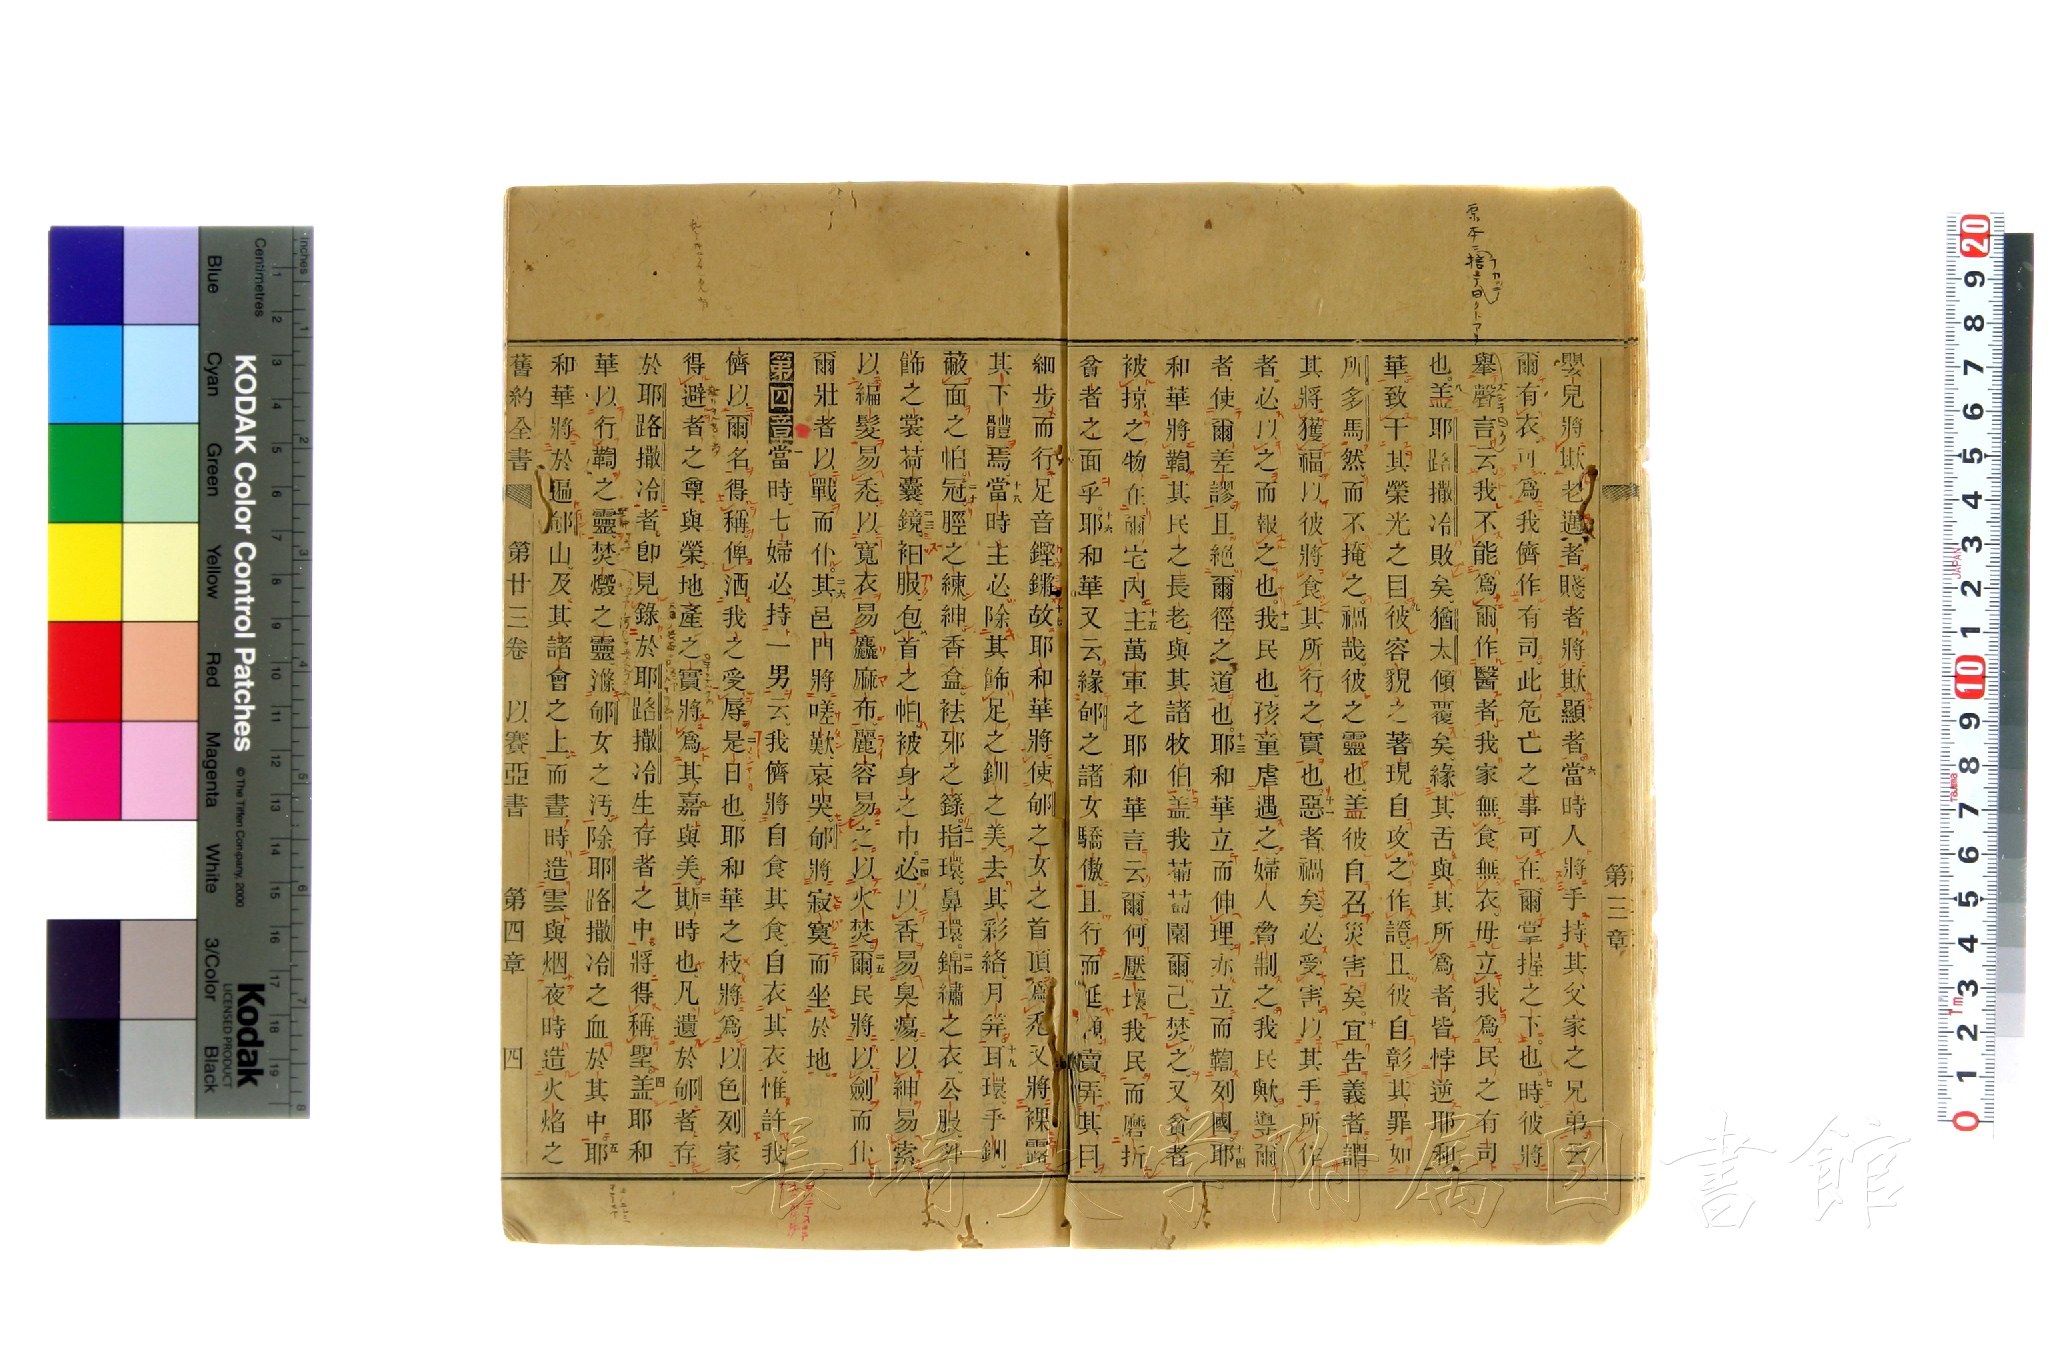 第三章
嬰兒將欺老邁者賤者將欺顯者六當時人將手持其父家之兄弟云
爾有衣可爲我儕作有司此危亡之事可在爾掌握之下也七時彼將
舉聲言云我不能爲爾作醫者我家無食無衣毋立我爲民之有司
也八盖耶路撒冷敗矣猶太傾覆矣緣其舌與其所爲者皆悖逆耶和
華致干其榮光之目九彼容貌之著現自攻之作證且彼自彰其罪如
所多馬然而不掩之禍哉彼之靈也盖彼自召災害矣十宜告義者謂
其將獲福以彼將食其所行之實也十一惡者禍矣必受害以其手所作
者必以之而報之也十二我民也孩童虐遇之婦人脅制之我民歟導爾
者使爾差謬且絕爾徑之道也十三耶和華立而伸理亦立而鞫列國十四耶
和華將鞫其民之長老與其諸牧伯盖我葡萄園爾己焚之又貧者
被掠之物在爾宅內十五主萬軍之耶和華言云爾何壓壞我民而磨折
貧者之面乎十六耶和華又云緣郇之諸女驕傲且行而延頸賣弄其目
細步而行足音鏗鏘十七故耶和華將使郇之女之首頂爲禿又將裸露
其下體焉十八當時主必除其飾足之釧之美去其彩絡月筓十九耳環手釧
蔽面之帕二十冠脛之練紳香盒袪邪之籙二一指環鼻環二二錦繡之衣公服外
飾之裳荷囊二三鏡衵服包首之帕被身之巾二四必以香易臭瘍以紳易索
以編髮易禿以寬衣易麤麻布麗容易之以火焚二五爾民將以劍而仆
爾壯者以戰而仆二六其邑門將嗟歎哀哭郇將寂寞而坐於地
第四章一當時七婦必持一男云我儕將自食其食自衣其衣惟許我
儕以爾名得稱俾洒我之受辱二是日也耶和華之枝將爲以色列家
得避者之尊與榮地產之實將爲其嘉與美三斯時也凡遺於郇者存
於耶路撒冷者卽見錄於耶路撒冷生存者之中將得稱聖四盖耶和
華以行鞫之靈焚燬之靈滌郇女之汚除耶路撒冷之血於其中五耶
和華將於區郇山及其諸會之上而晝時造雲與烟夜時造火焰之
舊約全書 第廿三卷 以賽亞書 第四章 四
長崎大学附属図書館
KODAK Color Control Patches
© The Tiffen Company, 2000
Kodak
LICENSED PRODUCT
Blue
Cyan
Green
Yellow
Red
Magenta
White
3/Color
Black
Inches
Centimetres
JAPAN